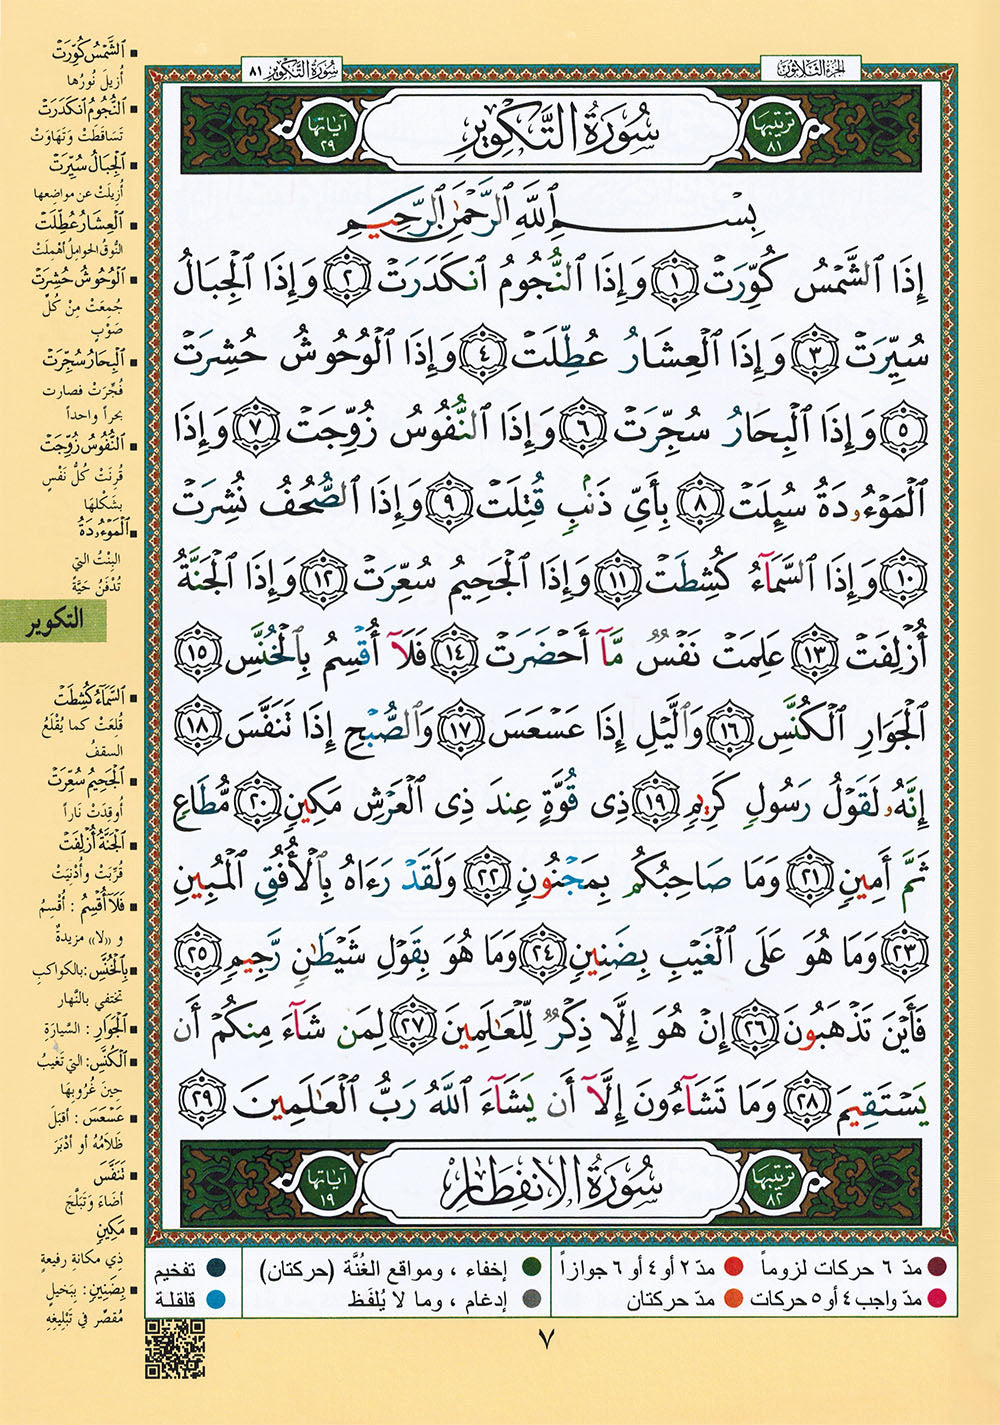 الجزء الثلاثون
سورة التكوير ٨١
ترتيبها ٨١
سُورَةُ التَّكْوِيرِ
آياتها ٢٩
بِسْمِ ٱللَّهِ ٱلرَّحْمَٰنِ ٱلرَّحِيمِ
إِذَا ٱلشَّمْسُ كُوِّرَتْ ١ وَإِذَا ٱلنُّجُومُ ٱنكَدَرَتْ ٢ وَإِذَا ٱلْجِبَالُ
سُيِّرَتْ ٣ وَإِذَا ٱلْعِشَارُ عُطِّلَتْ ٤ وَإِذَا ٱلْوُحُوشُ حُشِرَتْ
٥ وَإِذَا ٱلْبِحَارُ سُجِّرَتْ ٦ وَإِذَا ٱلنُّفُوسُ زُوِّجَتْ ٧ وَإِذَا
ٱلْمَوْءُۥدَةُ سُئِلَتْ ٨ بِأَيِّ ذَنۢبٍ قُتِلَتْ ٩ وَإِذَا ٱلصُّحُفُ نُشِرَتْ
١٠ وَإِذَا ٱلسَّمَآءُ كُشِطَتْ ١١ وَإِذَا ٱلْجَحِيمُ سُعِّرَتْ ١٢ وَإِذَا ٱلْجَنَّةُ
أُزْلِفَتْ ١٣ عَلِمَتْ نَفْسٌ مَّآ أَحْضَرَتْ ١٤ فَلَآ أُقْسِمُ بِٱلْخُنَّسِ ١٥
ٱلْجَوَارِ ٱلْكُنَّسِ ١٦ وَٱلَّيْلِ إِذَا عَسْعَسَ ١٧ وَٱلصُّبْحِ إِذَا تَنَفَّسَ ١٨
إِنَّهُۥ لَقَوْلُ رَسُولٍ كَرِيمٍ ١٩ ذِى قُوَّةٍ عِندَ ذِى ٱلْعَرْشِ مَكِينٍ ٢٠ مُّطَاعٍ
ثَمَّ أَمِينٍ ٢١ وَمَا صَاحِبُكُم بِمَجْنُونٍ ٢٢ وَلَقَدْ رَءَاهُ بِٱلْأُفُقِ ٱلْمُبِينِ
٢٣ وَمَا هُوَ عَلَى ٱلْغَيْبِ بِضَنِينٍ ٢٤ وَمَا هُوَ بِقَوْلِ شَيْطَٰنٍ رَّجِيمٍ ٢٥
فَأَيْنَ تَذْهَبُونَ ٢٦ إِنْ هُوَ إِلَّا ذِكْرٌ لِّلْعَٰلَمِينَ ٢٧ لِمَن شَآءَ مِنكُمْ أَن
يَسْتَقِيمَ ٢٨ وَمَا تَشَآءُونَ إِلَّآ أَن يَشَآءَ ٱللَّهُ رَبُّ ٱلْعَٰلَمِينَ ٢٩
ترتيبها ٨٢
سُورَةُ الانفِطَارِ
آياتها ١٩
▪ ٱلشَّمْسُ كُوِّرَتْ
أُزيلَ نُورُها
▪ ٱلنُّجُومُ ٱنكَدَرَتْ
تَسَاقَطَتْ وَتَهَاوَتْ
▪ ٱلْجِبَالُ سُيِّرَتْ
أُزيلَتْ عن مواضِعها
▪ ٱلْعِشَارُ عُطِّلَتْ
النُّوقُ الحَوامِلُ أُهْمِلَتْ
▪ ٱلْوُحُوشُ حُشِرَتْ
جُمِعَتْ مِنْ كُلِّ
صَوْبٍ
▪ ٱلْبِحَارُ سُجِّرَتْ
فُجِّرَتْ فصارت
بحراً واحداً
▪ ٱلنُّفُوسُ زُوِّجَتْ
قُرِنَتْ كُلُّ نَفْسٍ
بِشَكْلِهَا
▪ ٱلْمَوْءُۥدَةُ
البِنْتُ التي
تُدْفَنُ حَيَّةً
التكوير
▪ ٱلسَّمَآءُ كُشِطَتْ
قُلعَتْ كما يُقْلَعُ
السقفُ
▪ ٱلْجَحِيمُ سُعِّرَتْ
أُوقِدَتْ نَاراً
▪ ٱلْجَنَّةُ أُزْلِفَتْ
قُرِّبَتْ وأُدْنِيَتْ
▪ فَلَآ أُقْسِمُ : أُقْسِمُ
و «لا» مزيدةٌ
▪ بِٱلْخُنَّسِ : بالكواكبِ
تختفي بالنَّهار
▪ ٱلْجَوَارِ : السَّيارَةِ
▪ ٱلْكُنَّسِ : التي تَغِيبُ
حِينَ غُرُوبِهَا
▪ عَسْعَسَ : أَقْبَلَ
ظَلَامُهُ أو أَدْبَرَ
▪ تَنَفَّسَ
أضَاءَ وَتَبَلَّجَ
▪ مَكِينٍ
ذِي مكانة رفيعةٍ
▪ بِضَنِينٍ : بِبَخيلٍ
مُقَصِّر في تَبْلِيغِهِ
مدّ ٦ حركات لزوماً
مدّ ٢ أو ٤ أو ٦ جوازاً
إخفاء ، ومواقع الغُنَّة (حركتان)
تفخيم
مدّ واجب ٤ أو ٥ حركات
مدّ حركتان
إدغام ، وما لا يُلفَظ
قلقلة
٧